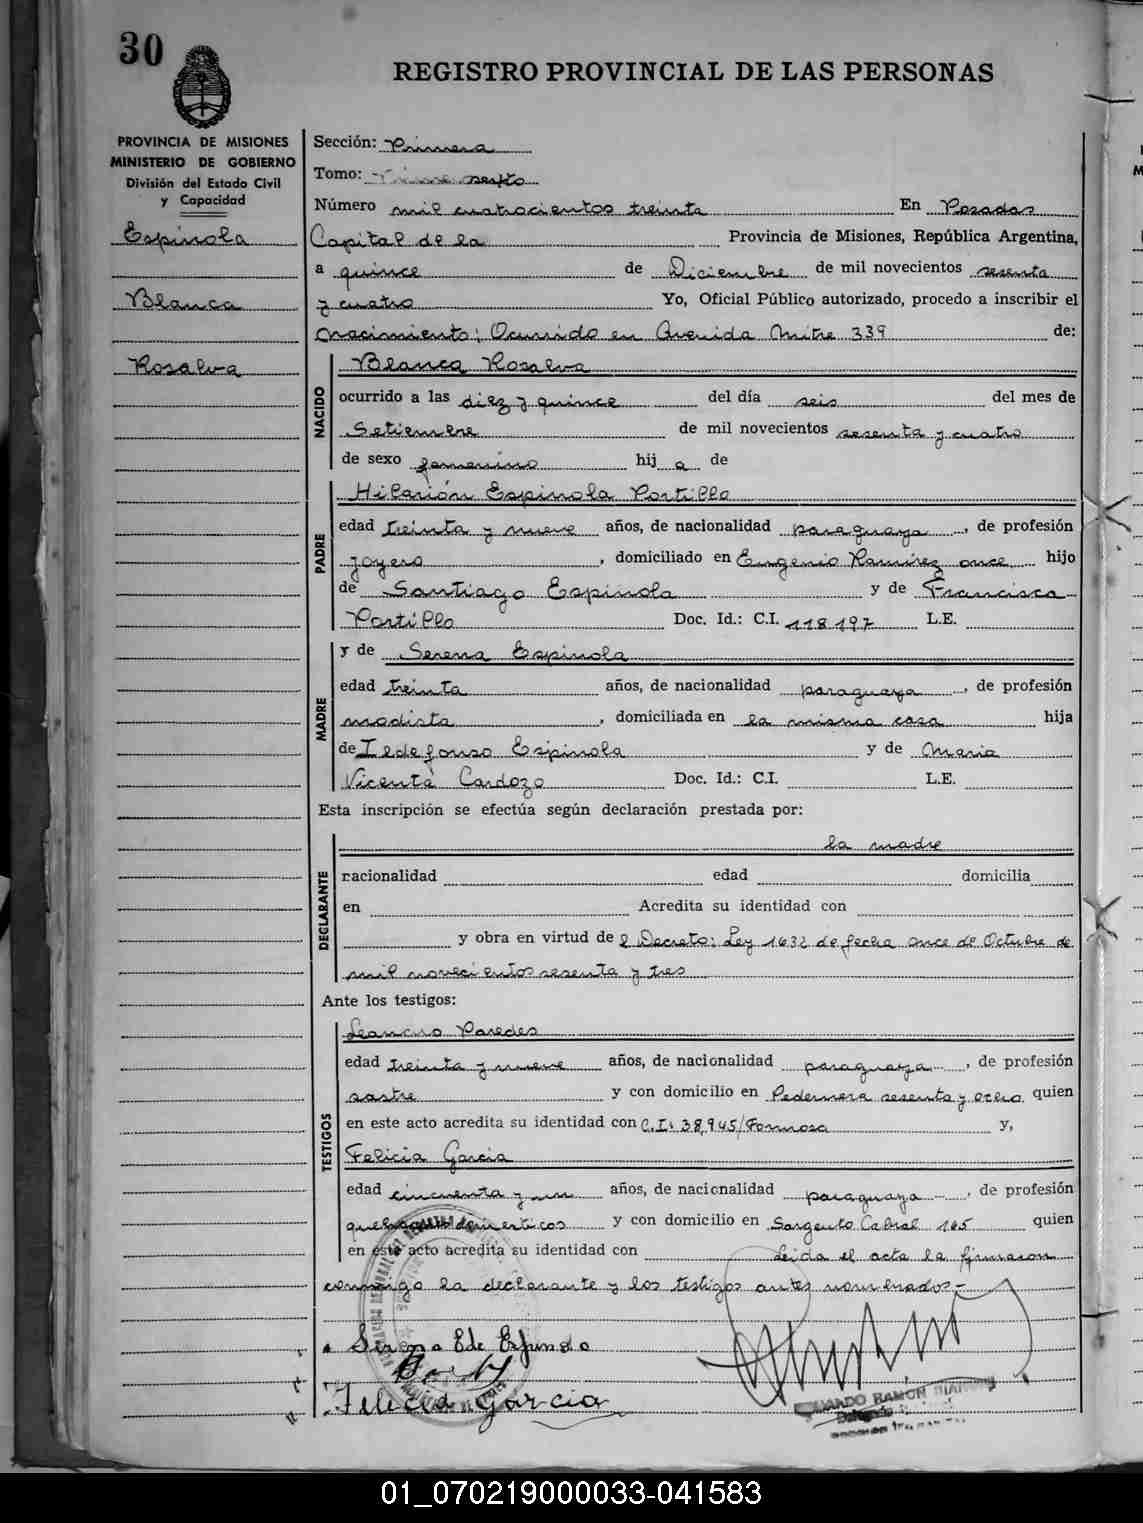 30
REGISTRO PROVINCIAL DE LAS PERSONAS
PROVINCIA DE MISIONES
MINISTERIO DE GOBIERNO
División del Estado Civil
y Capacidad
Espínola
Blanca
Rosalva
Sección: Primera
Tomo: sexto
Número mil cuatrocientos treinta En Posadas
Capital de la Provincia de Misiones, República Argentina,
a quince de Diciembre de mil novecientos sesenta
y cuatro Yo, Oficial Público autorizado, procedo a inscribir el
nacimiento; Ocurrido en Avenida Mitre 339 de:
NACIDO
Blanca Rosalva
ocurrido a las diez y quince del día seis del mes de
Setiembre de mil novecientos sesenta y cuatro
de sexo femenino hij a de
PADRE
Hilarión Espínola Portillo
edad treinta y nueve años, de nacionalidad paraguaya, de profesión
joyero, domiciliado en Eugenio Ramírez once hijo
de Santiago Espínola y de Francisca
Portillo Doc. Id.: C.I. 118.197 L.E.
MADRE
y de Serena Espínola
edad treinta años, de nacionalidad paraguaya, de profesión
modista, domiciliada en la misma casa hija
de Ildefonso Espínola y de María
Vicenta Cardozo Doc. Id.: C.I. L.E.
Esta inscripción se efectúa según declaración prestada por:
DECLARANTE
la madre
nacionalidad edad domicilia
en Acredita su identidad con
y obra en virtud de l Decreto: Ley 1632 de fecha once de Octubre de
mil novecientos sesenta y tres
Ante los testigos:
TESTIGOS
Leandro Paredes
edad treinta y nueve años, de nacionalidad paraguaya, de profesión
sastre y con domicilio en Pedernera sesenta y ocho quien
en este acto acredita su identidad con C.I: 38.945/Formosa y,
Felicia Garcia
edad cincuenta y un años, de nacionalidad paraguaya, de profesión
quehaceres domésticos y con domicilio en Sargento Cabral 165 quien
en este acto acredita su identidad con Leida el acta la firmaron
conmigo la declarante y los testigos antes nombrados.-
Serena E de Espínola
Felicia Garcia
RAMÓN
01_070219000033-041583